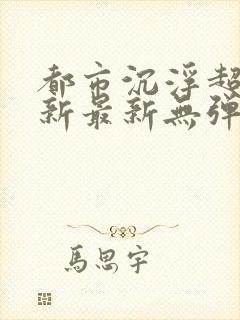 都市沉浮超
新最新無弹
馬思宇